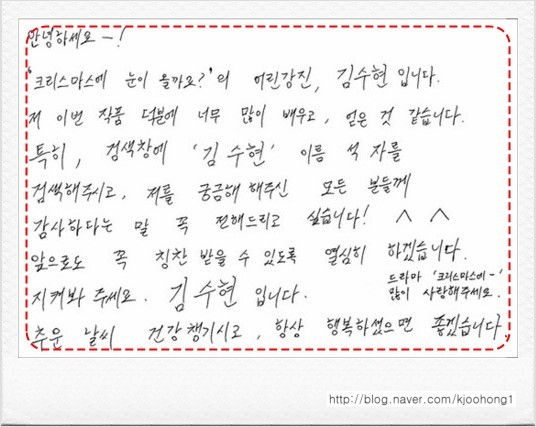 안녕하세요-!
'크리스마스에 눈이 올까요?'의 어린강진, 김수현입니다.
저 이번 작품 덕분에 너무 많이 배우고, 얻은 것 같습니다.
특히, 검색창에 '김수현' 이름 석 자를
검색해주시고, 저를 궁금해 해주신 모든 분들께
감사하다는 말 꼭 전해드리고 싶습니다! ^ ^
앞으로도 꼭 칭찬 받을 수 있도록 열심히 하겠습니다.
지켜봐 주세요. 김수현 입니다.
드라마 '크리스마스에-'
많이 사랑해주세요.
추운 날씨 건강챙기시고, 항상 행복하셨으면 좋겠습니다.
http://blog.naver.com/kjoohong1